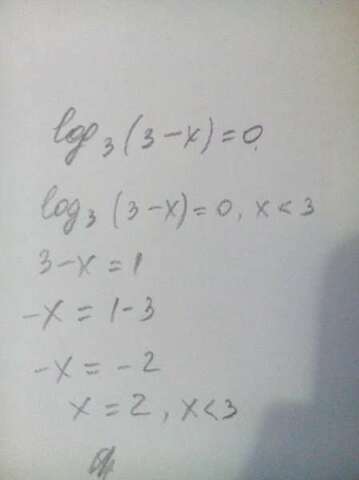 log₃(3-x)=0.
log₃(3-x)=0, x<3
3-x=1
-x=1-3
-x=-2
x=2, x<3